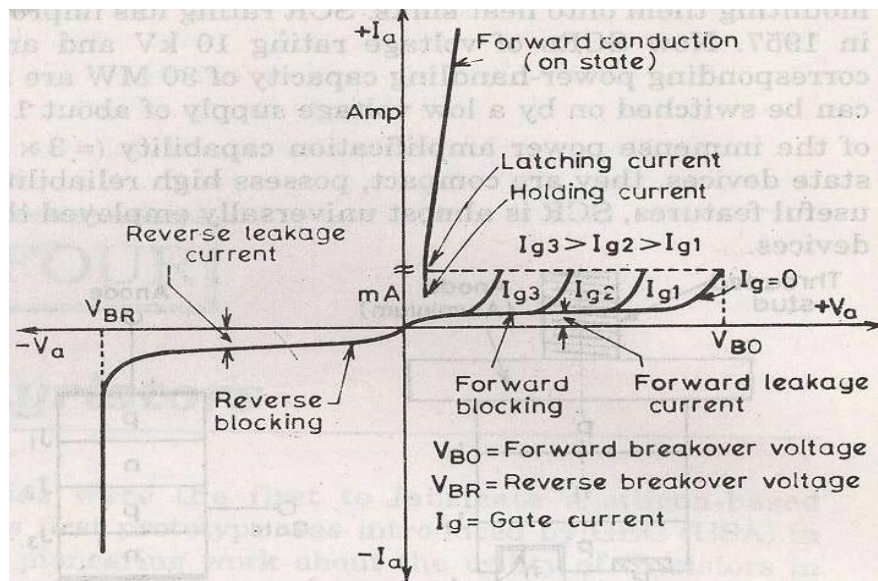 +Ia
Forward conduction
(on state)
Amp
Latching current
Holding current
Reverse leakage
current
Ig3 > Ig2 > Ig1
mA
Ig3
Ig2
Ig1
Ig=0
+Va
VBR
-Va
VBO
Reverse
blocking
Forward
blocking
Forward leakage
current
VBO = Forward breakover voltage
VBR = Reverse breakover voltage
Ig = Gate current
-Ia